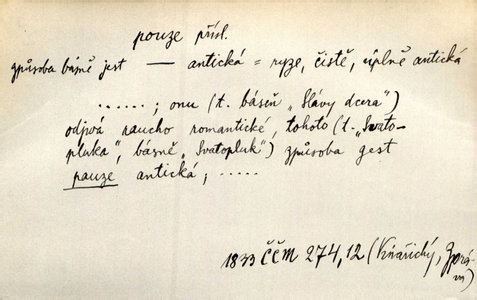 pouze přísl.
způsoba básně jest — antická = ryze, čistě, úplně antická
......; onu (t. báseň „Slávy dcera")
odjívá raucho romantické, tohoto (t. „Svato-
pluka", básně „Svatopluk") způsoba gest
pauze antická; .....
1833 ČČM 274,12 (Vinařický, Zprá-
va)